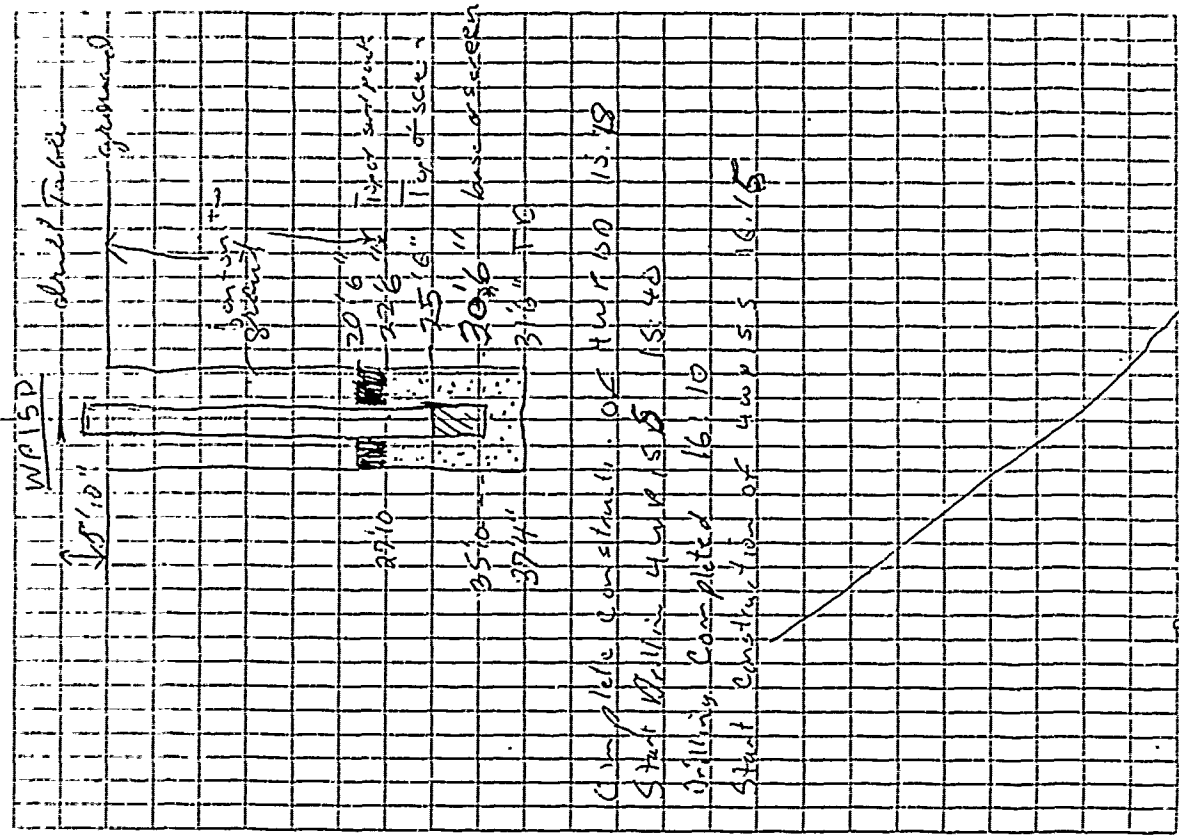 WP15D
drill Table
5'10"
ground
bentonite
grout
20'6"
22'6" Top of sand pack
27'10
25'6" Top of scre
30'6" base of screen
35'10
31'6" TD
37'4"
Complete construct. of 4WP15D 15:18
Start Drilling 4WP15S 15:40
Drilling Completed 16:10
Start Construction of 4WP15S 16:15